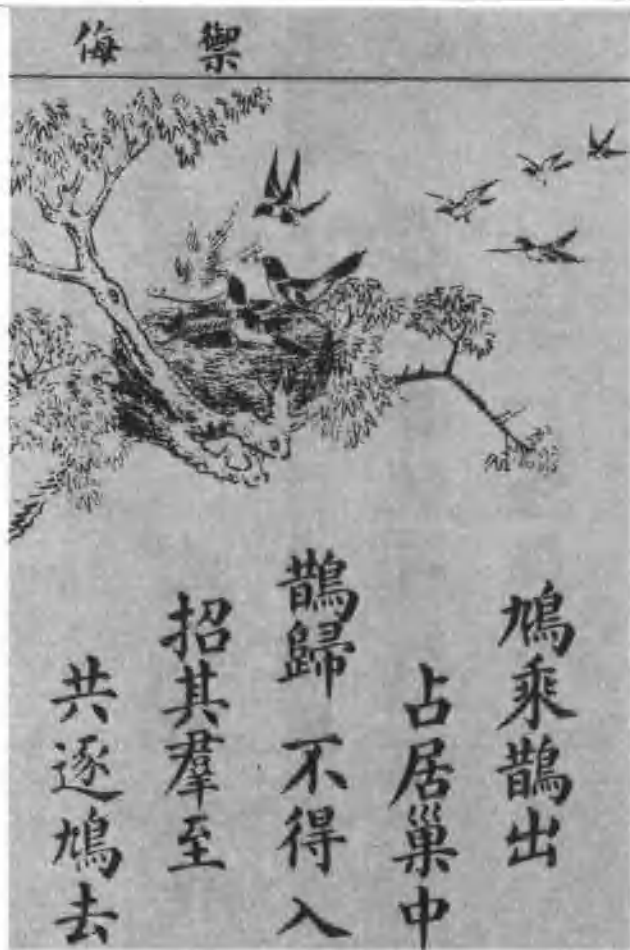 禦侮
鳩乘鵲出
占居巢中
鵲歸 不得入
招其羣至
共逐鳩去